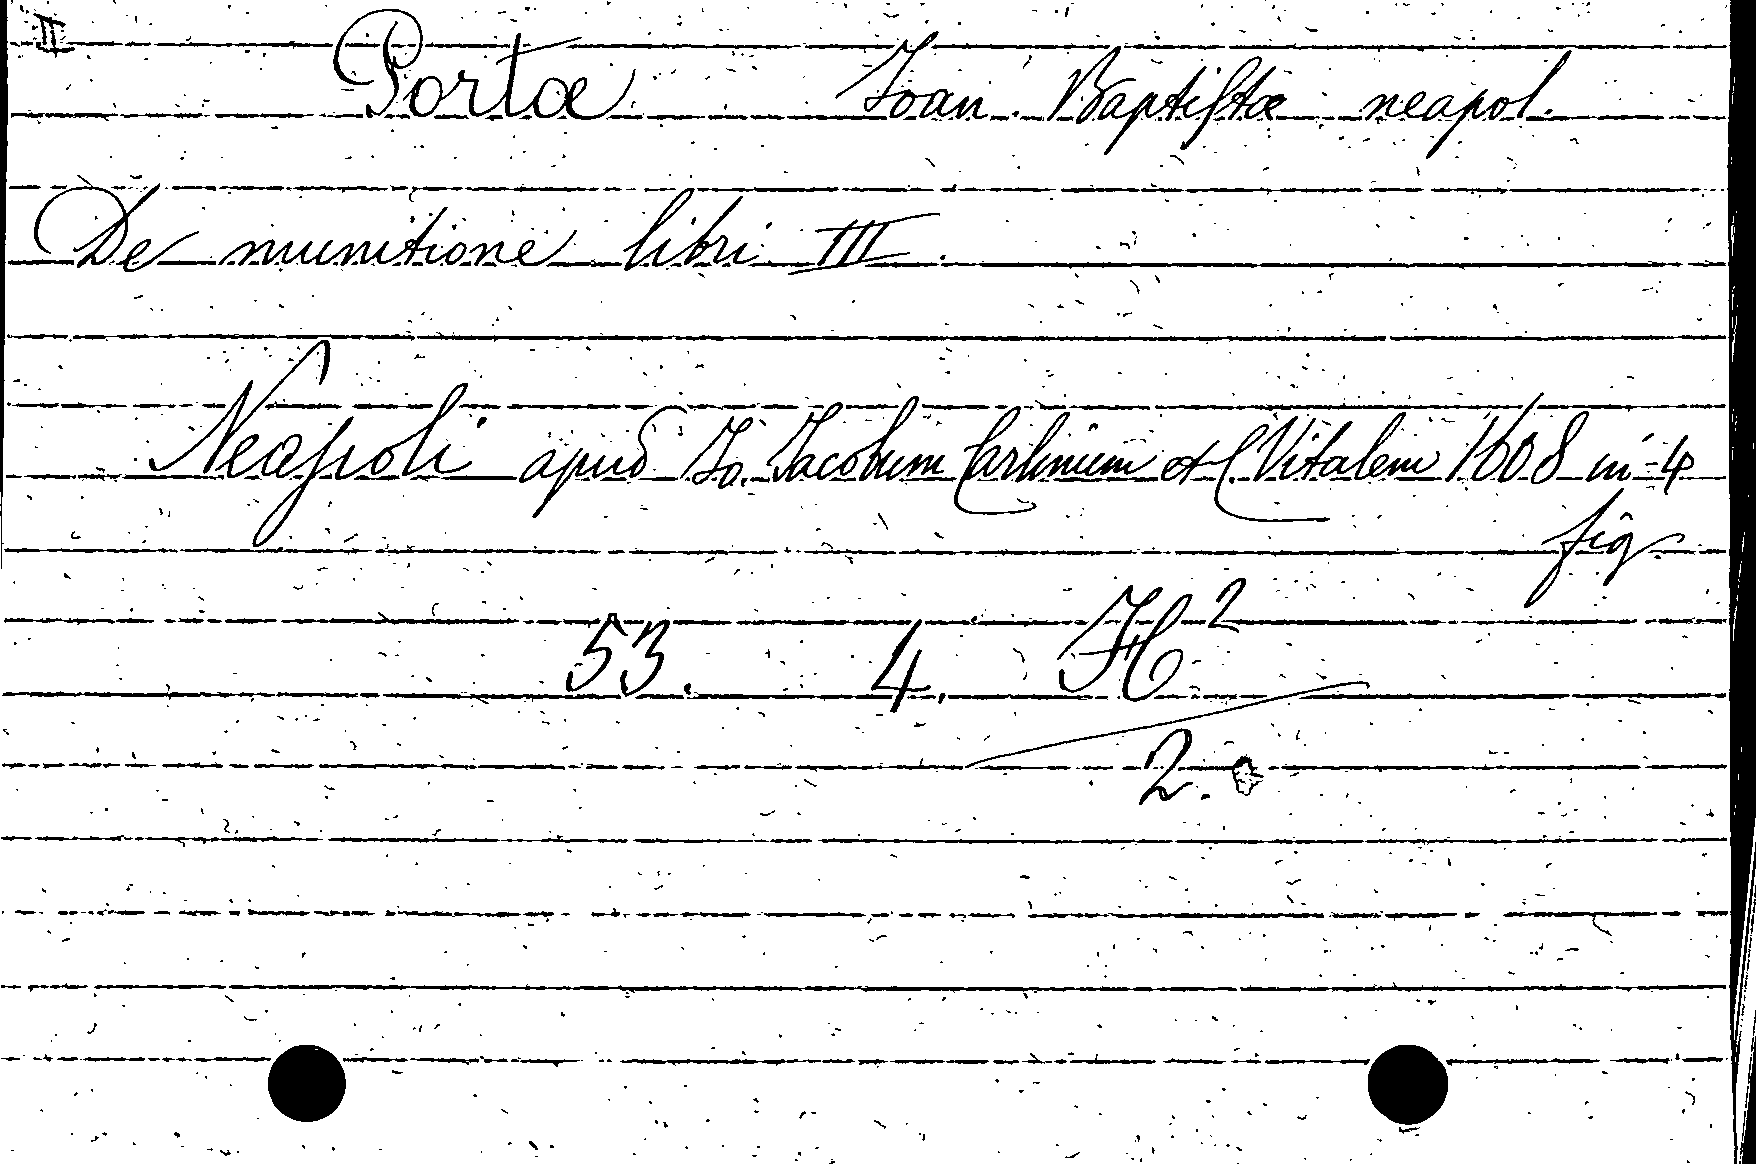 II
Portæ Joan. Baptistæ neapol.
De munitione libri III.
Neapoli apud Jo. Jacobum Carlinium et C. Vitalem 1608 in-4
fig.
53. 4. H²
2.